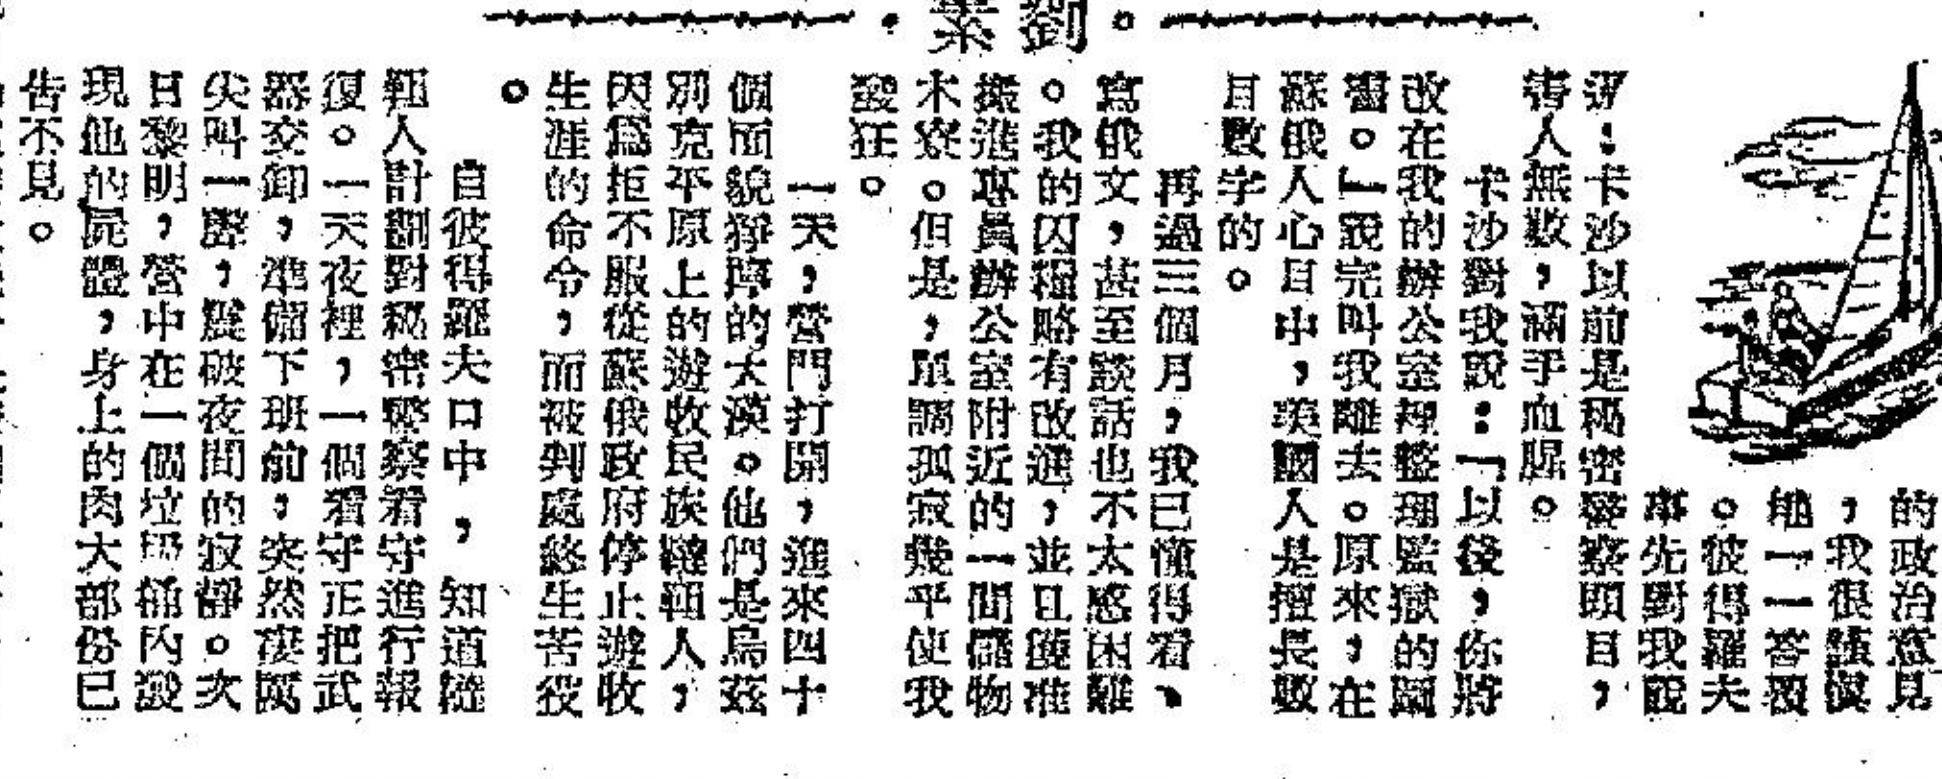 。劉素・
的政治意見
，我很謹愼
地一一答覆
。彼得羅夫
事先對我說
過：卡沙以前是秘密警察頭目，
害人無數，滿手血腥。
卡沙對我說：「以後，你將
改在我的辦公室裡整理監獄的圖
書。」說完叫我離去。原來，在
蘇俄人心目中，美國人是擅長數
目數字的。
再過三個月，我已懂得看、
寫俄文，甚至談話也不太感困難
。我的囚糧略有改進，並且獲准
搬進專員辦公室附近的一間儲物
木寮。但是，單調孤寂幾乎使我
發狂。
一天，營門打開，進來四十
個面貌猙獰的大漢。他們是烏茲
別克平原上的遊收民族韃靼人，
因爲拒不服從蘇俄政府停止遊收
生涯的命令，而被判處終生苦役
。
自彼得羅夫口中，知道韃
靼人計劃對秘密警察看守進行報
復。一天夜裡，一個看守正把武
器交卸，準備下班前，突然淒厲
尖叫一聲，震破夜間的寂靜。次
日黎明，營中在一個垃圾桶內發
現他的屍體，身上的肉大部份已
告不見。